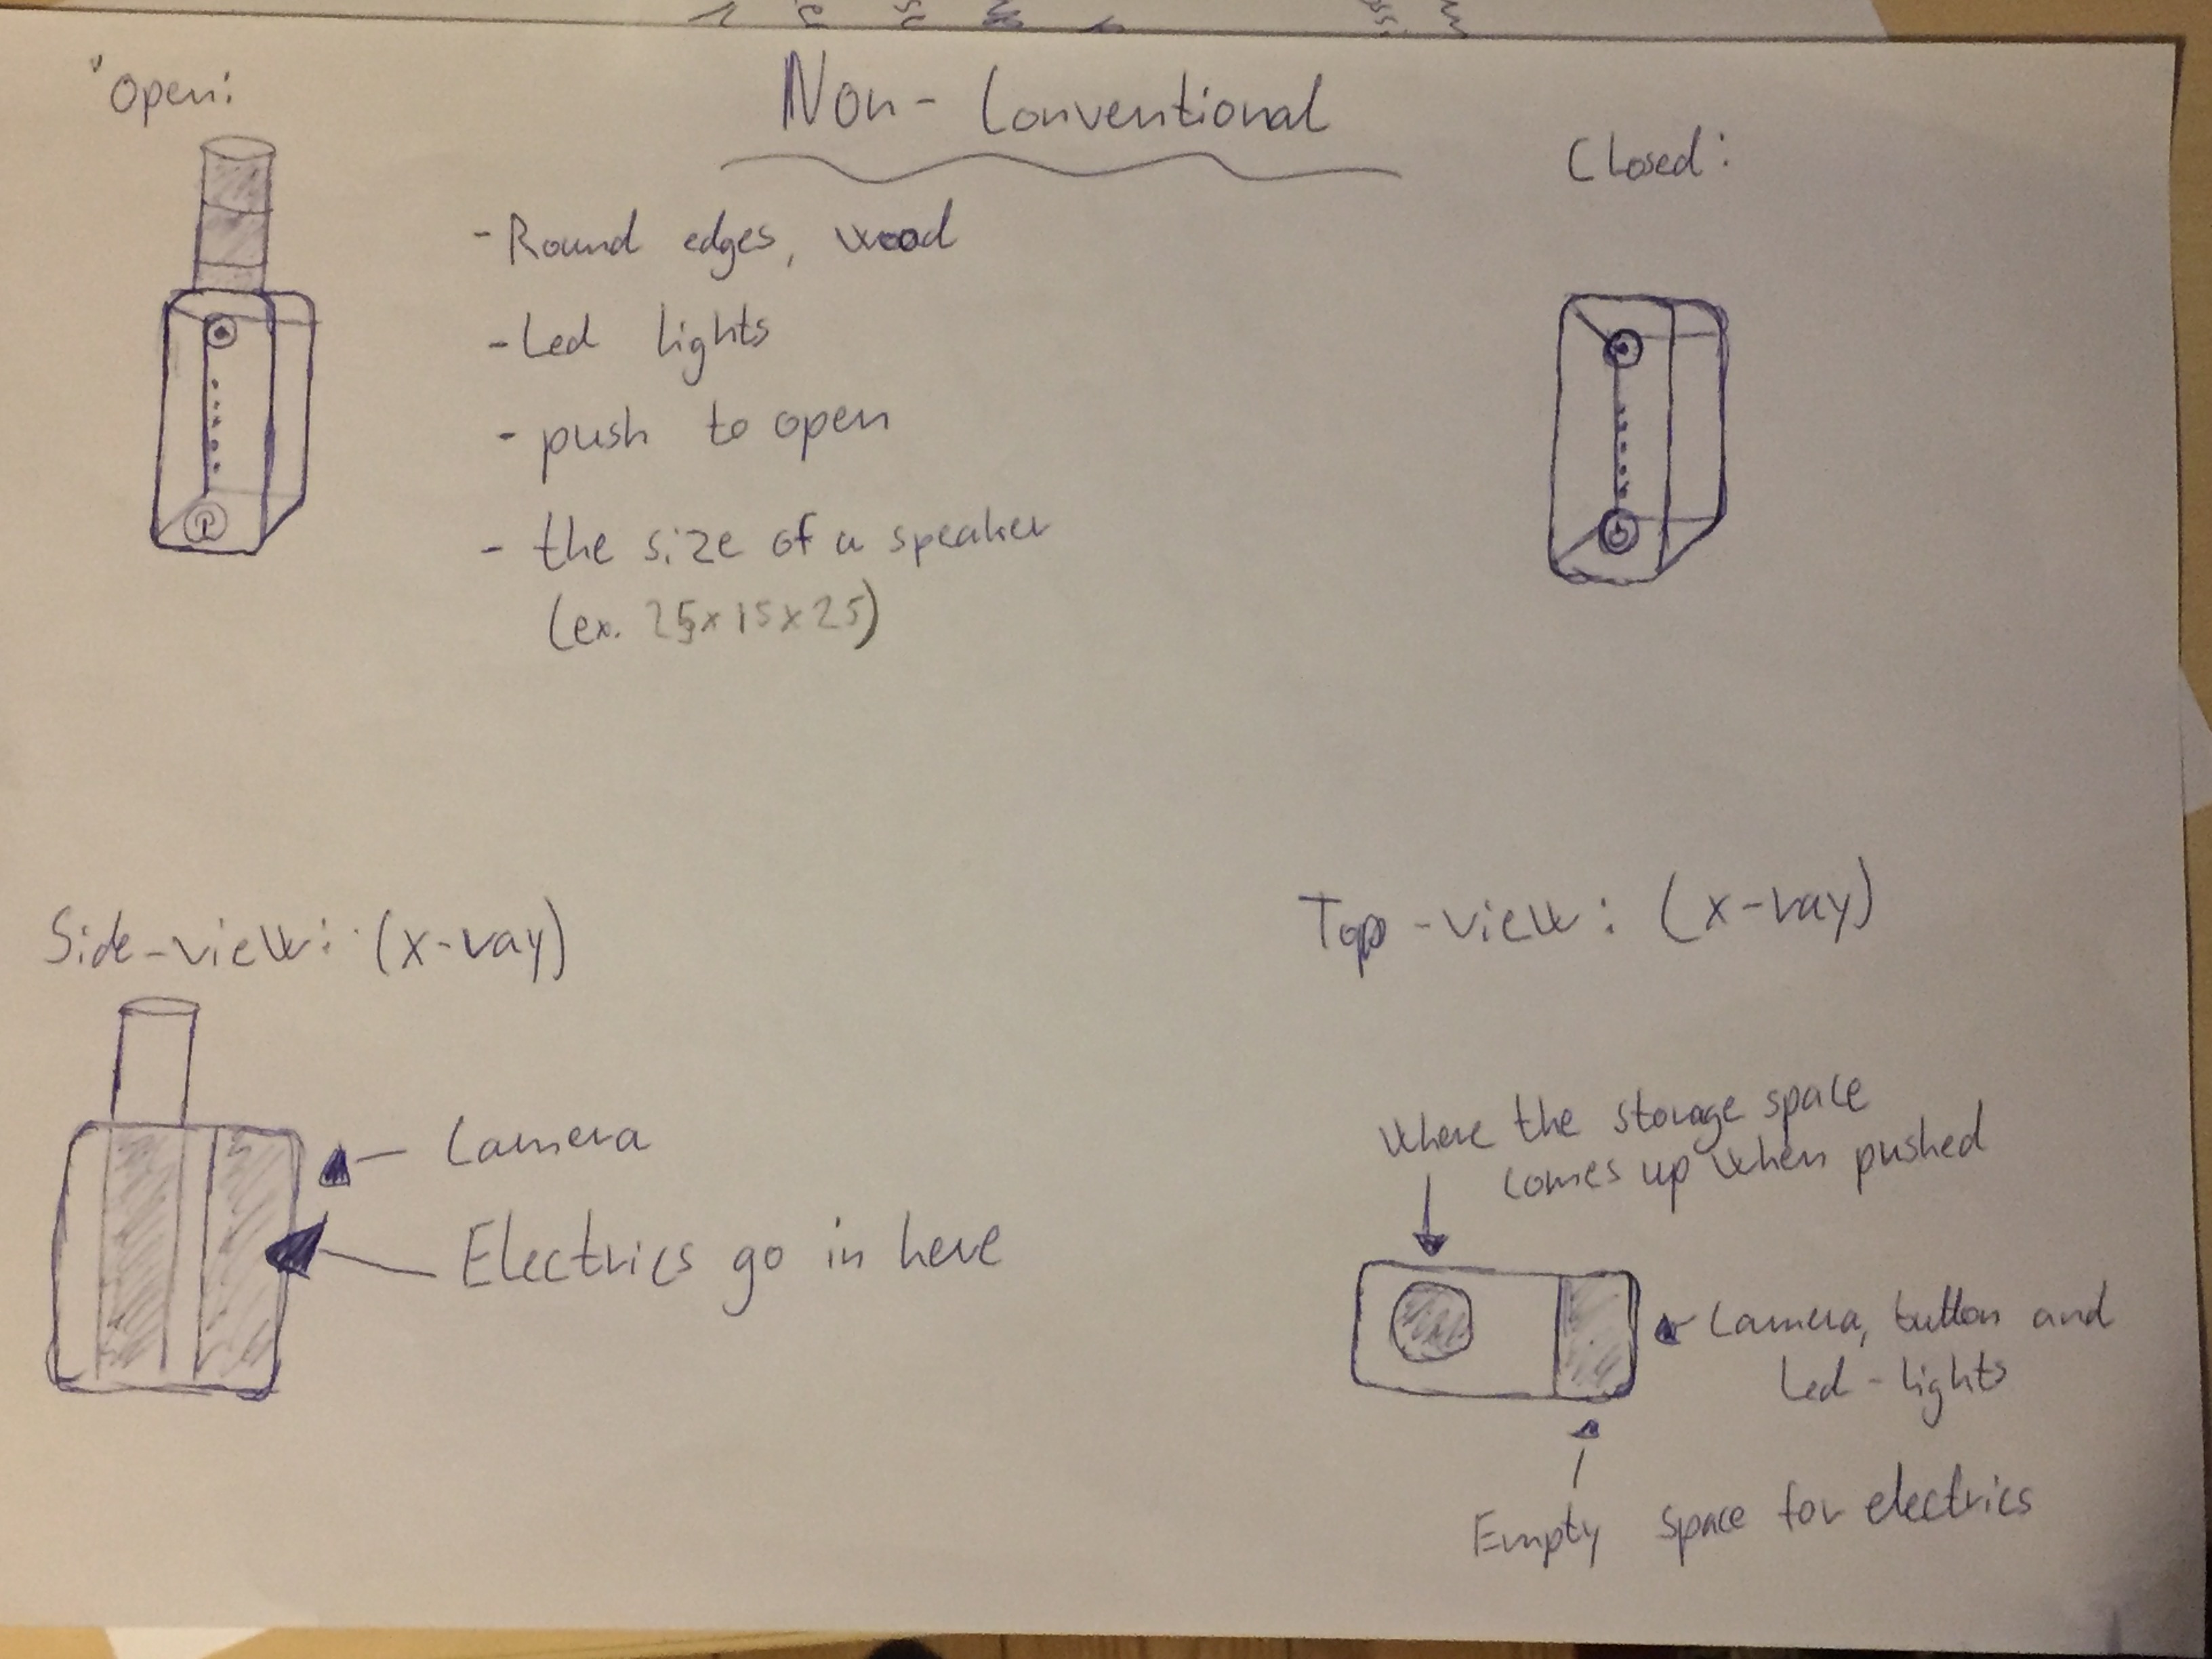 Open:
Non-Conventional
Closed:
- Round edges, wood
- Led lights
- push to open
- the size of a speaker
(ex. 25x15x25)
Side-view: (x-ray)
Camera
Electrics go in here
Top-view: (x-ray)
Where the storage space
comes up when pushed
Camera, button and
Led-lights
Empty space for electrics